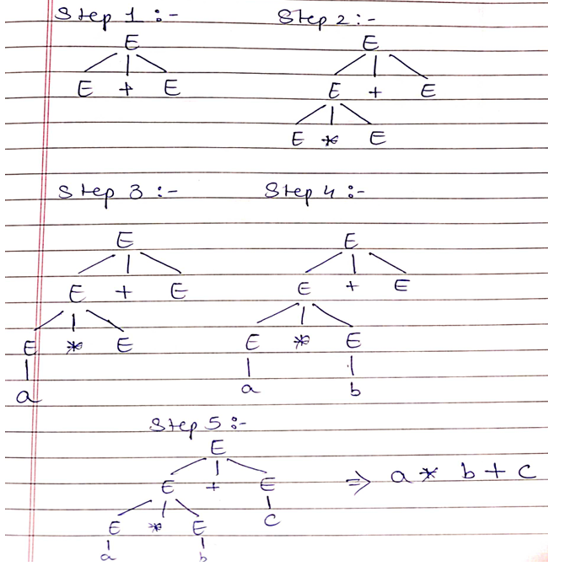 Step 1 :-
E
E + E
Step 2 :-
E
E + E
E * E
Step 3 :-
E
E + E
E * E
a
Step 4 :-
E
E + E
E * E
a b
Step 5 :-
E
E + E
E * E c
a b
⇒ a * b + c